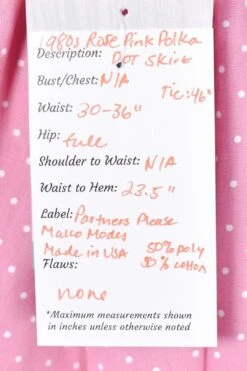 1980s Rose Pink Polka
Description: DOT Skirt
Bust/Chest: N/A
Tie: 46"
Waist: 30-36"
Hip: full
Shoulder to Waist: N/A
Waist to Hem: 23.5"
Label: Partners Please
Malco Modes
Made in USA 50% poly
Flaws: 50% cotton
none
*Maximum measurements shown
in inches unless otherwise noted